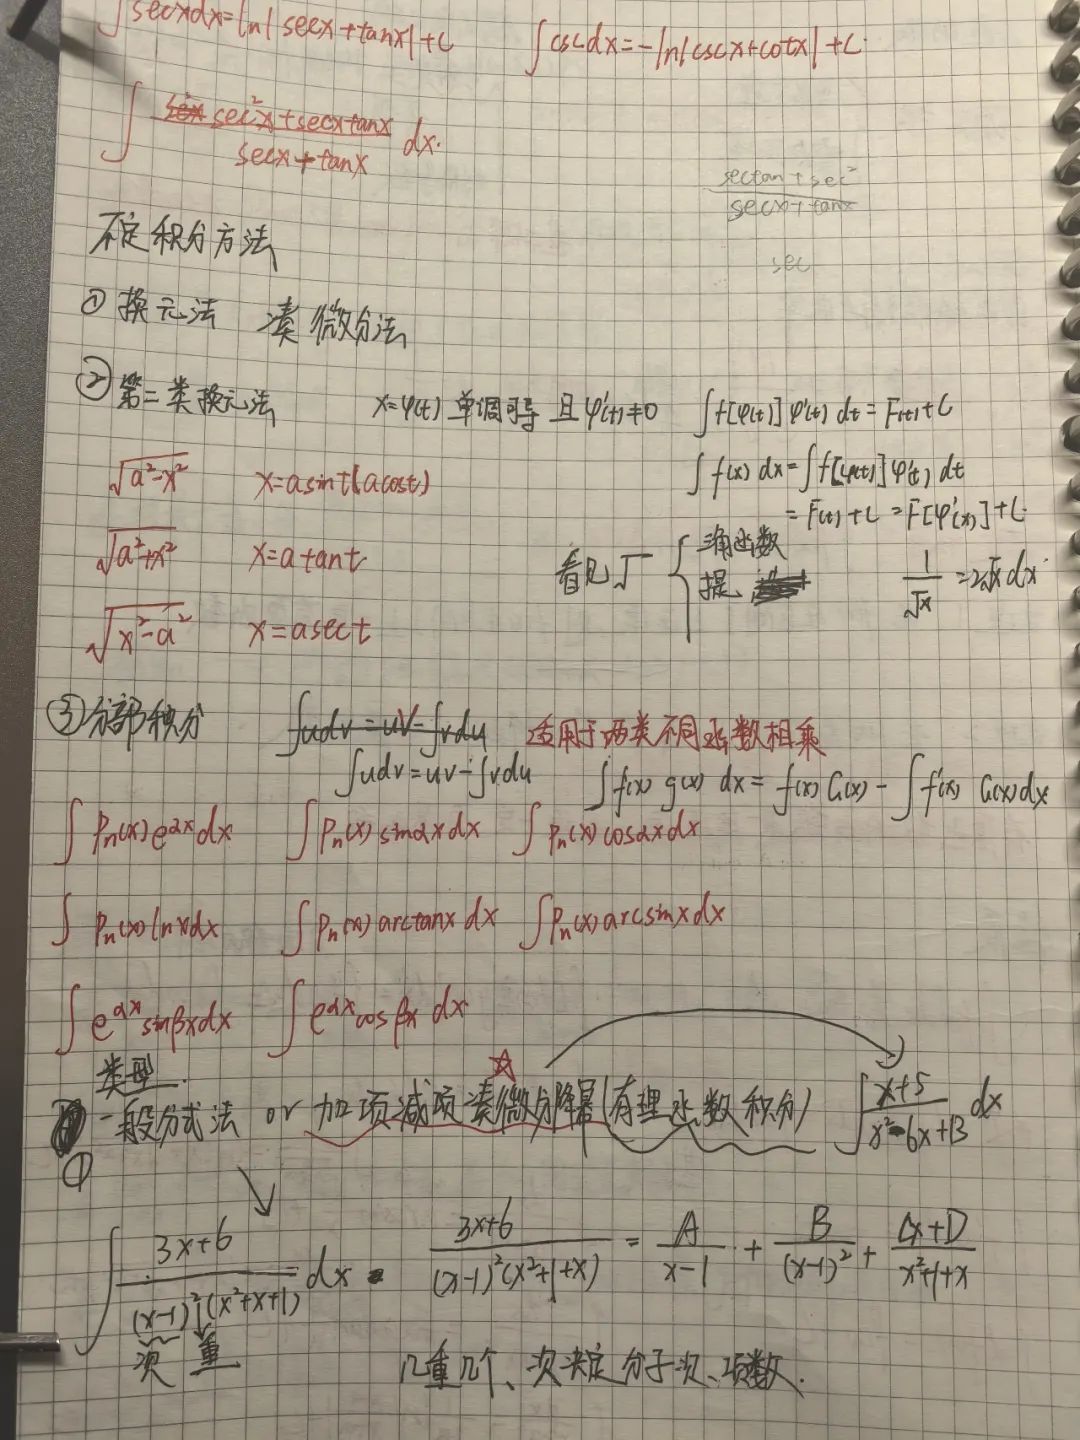 ∫secxdx=ln|secx+tanx|+C ∫cscdx=-ln|cscx+cotx|+C.
∫ (sec²x+secxtanx)/(secx+tanx) dx.
(sectan+sec²)/(secx+tanx)
sec
不定积分方法
① 换元法 凑微分法
② 第二类换元法 x=φ(t) 单调可导 且φ'(t)≠0 ∫f[φ(t)]φ'(t)dt=F(t)+C
√(a²-x²) x=asint(acost) ∫f(x)dx=∫f[φ(t)]φ'(t)dt
=F(t)+C=F[φ'(x)]+C.
√(a²+x²) x=atant 看见√ { 三角函数
提 1/√x=2√x dx
√(x²-a²) x=asect
③分部积分 ∫udv=uv-∫vdu 适用于两类不同函数相乘
∫udv=uv-∫vdu ∫f(x)g(x)dx=f(x)G(x)-∫f'(x)G(x)dx
∫Pn(x)e^{αx}dx ∫Pn(x)sinαxdx ∫Pn(x)cosαxdx
∫Pn(x)lnxdx ∫Pn(x)arctanxdx ∫Pn(x)arcsinxdx
∫e^{αx}sinβxdx ∫e^{αx}cosβxdx
类型.
① 一般分式法 or 加项减项凑微分降幂(有理函数积分) ∫(x+5)/(x²-6x+13)dx
∫(3x+6)/((x-1)²(x²+x+1))dx (3x+6)/((x-1)²(x²+1+x))=A/(x-1)+B/(x-1)²+(Cx+D)/(x²+1+x)
次 重 几重几个、次决定分子次、项数.